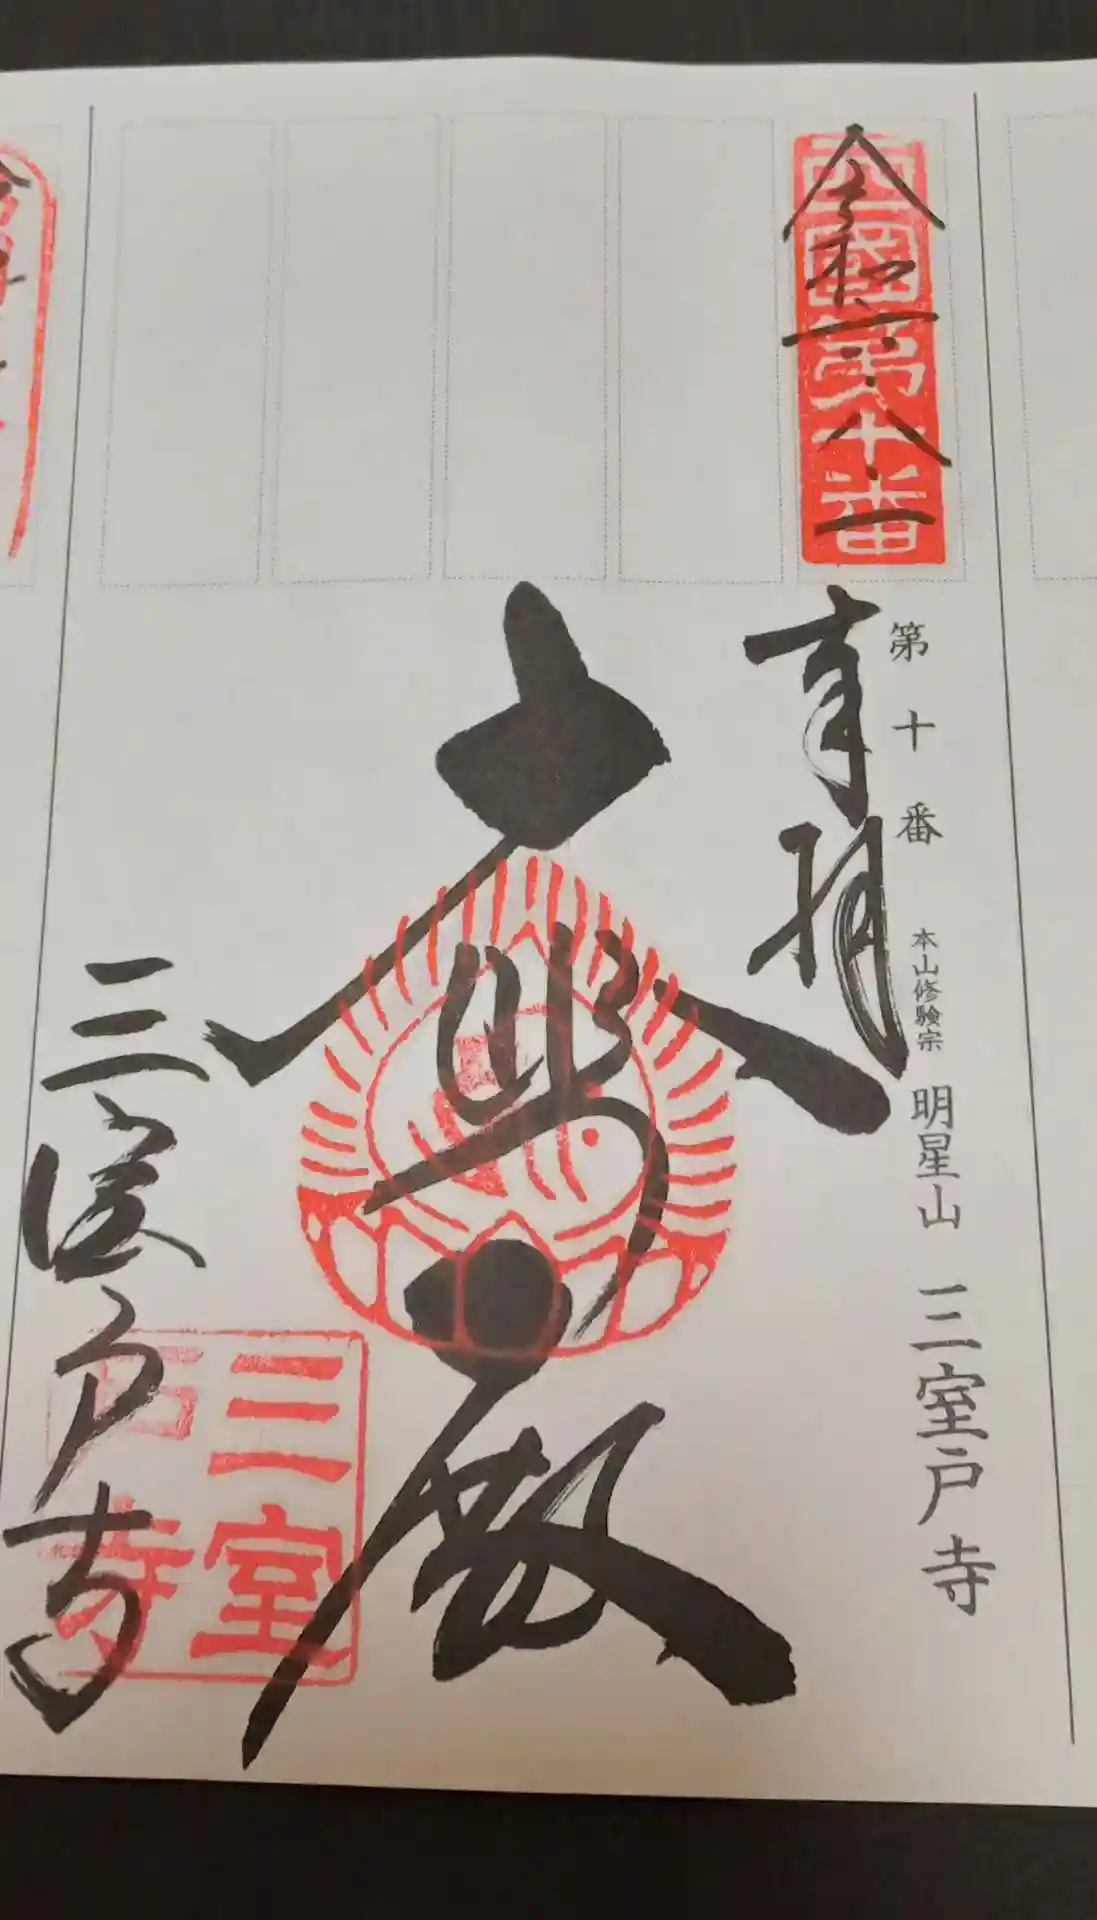 西國第十番
令和六・八・一
第十番 本山修験宗 明星山 三室戸寺
奉拝
大悲殿
三室戸寺
三室戸寺